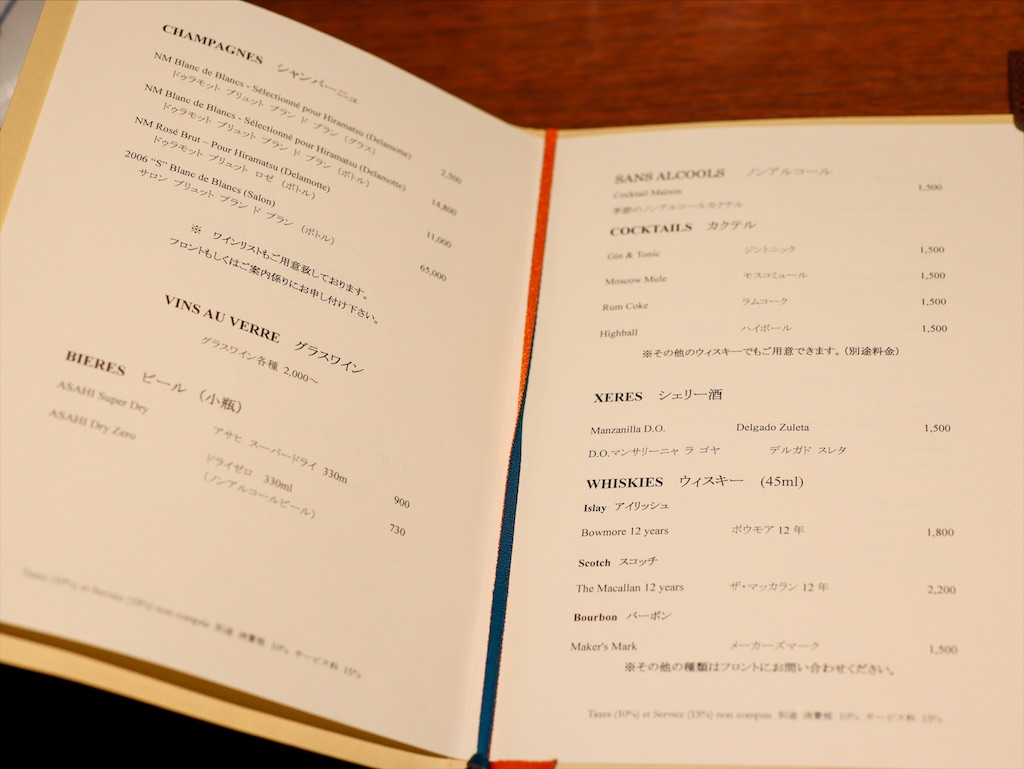 CHAMPAGNES シャンパーニュ
NM Blanc de Blancs - Sélectionné pour Hiramatsu (Delamotte)
ドゥラモット ブリュット ブラン ド ブラン (グラス) 2,500
NM Blanc de Blancs - Sélectionné pour Hiramatsu (Delamotte)
ドゥラモット ブリュット ブラン ド ブラン (ボトル) 14,800
NM Rosé Brut – Pour Hiramatsu (Delamotte)
ドゥラモット ブリュット ロゼ (ボトル) 11,000
2006 "S" Blanc de Blancs (Salon)
サロン ブリュット ブラン ド ブラン (ボトル) 65,000
※ ワインリストもご用意致しております。
フロントもしくはご案内係りにお申し付け下さい。
VINS AU VERRE グラスワイン
グラスワイン各種 2,000～
BIERES ビール (小瓶)
ASAHI Super Dry アサヒ スーパードライ 330m 900
ASAHI Dry Zero ドライゼロ 330ml 730
(ノンアルコールビール)
Taxes (10%) et Service (15%) non compris 別途 消費税 10% サービス料 15%
SANS ALCOOLS ノンアルコール
Cocktail Maison 1,500
季節のノンアルコールカクテル
COCKTAILS カクテル
Gin & Tonic ジントニック 1,500
Moscow Mule モスコミュール 1,500
Rum Coke ラムコーク 1,500
Highball ハイボール 1,500
※その他のウィスキーでもご用意できます。(別途料金)
XERES シェリー酒
Manzanilla D.O. Delgado Zuleta 1,500
D.O.マンサリーニャ ラ ゴヤ デルガド スレタ
WHISKIES ウィスキー (45ml)
Islay アイリッシュ
Bowmore 12 years ボウモア 12 年 1,800
Scotch スコッチ
The Macallan 12 years ザ・マッカラン 12 年 2,200
Bourbon バーボン
Maker's Mark メーカーズマーク 1,500
※その他の種類はフロントにお問い合わせください。
Taxes (10%) et Service (15%) non compris 別途 消費税 10% サービス料 15%